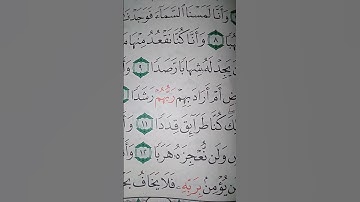 وَأَنَّا لَمَسْنَا ٱلسَّمَآءَ فَوَجَدْنَـ
ـهُبًا ٨ وَأَنَّا كُنَّا نَقْعُدُ مِنْهَا
يَجِدْ لَهُۥ شِهَابًا رَّصَدًا ٩
ـضِ أَمْ أَرَادَ بِهِمْ رَبُّهُمْ رَشَدًا
ـكَ كُنَّا طَرَآئِقَ قِدَدًا ١١ وَأَ
وَلَن نُّعْجِزَهُۥ هَرَبًا ١٢ وَأَ
ـن يُؤْمِنۢ بِرَبِّهِۦ فَلَا يَخَافُ بَخـ